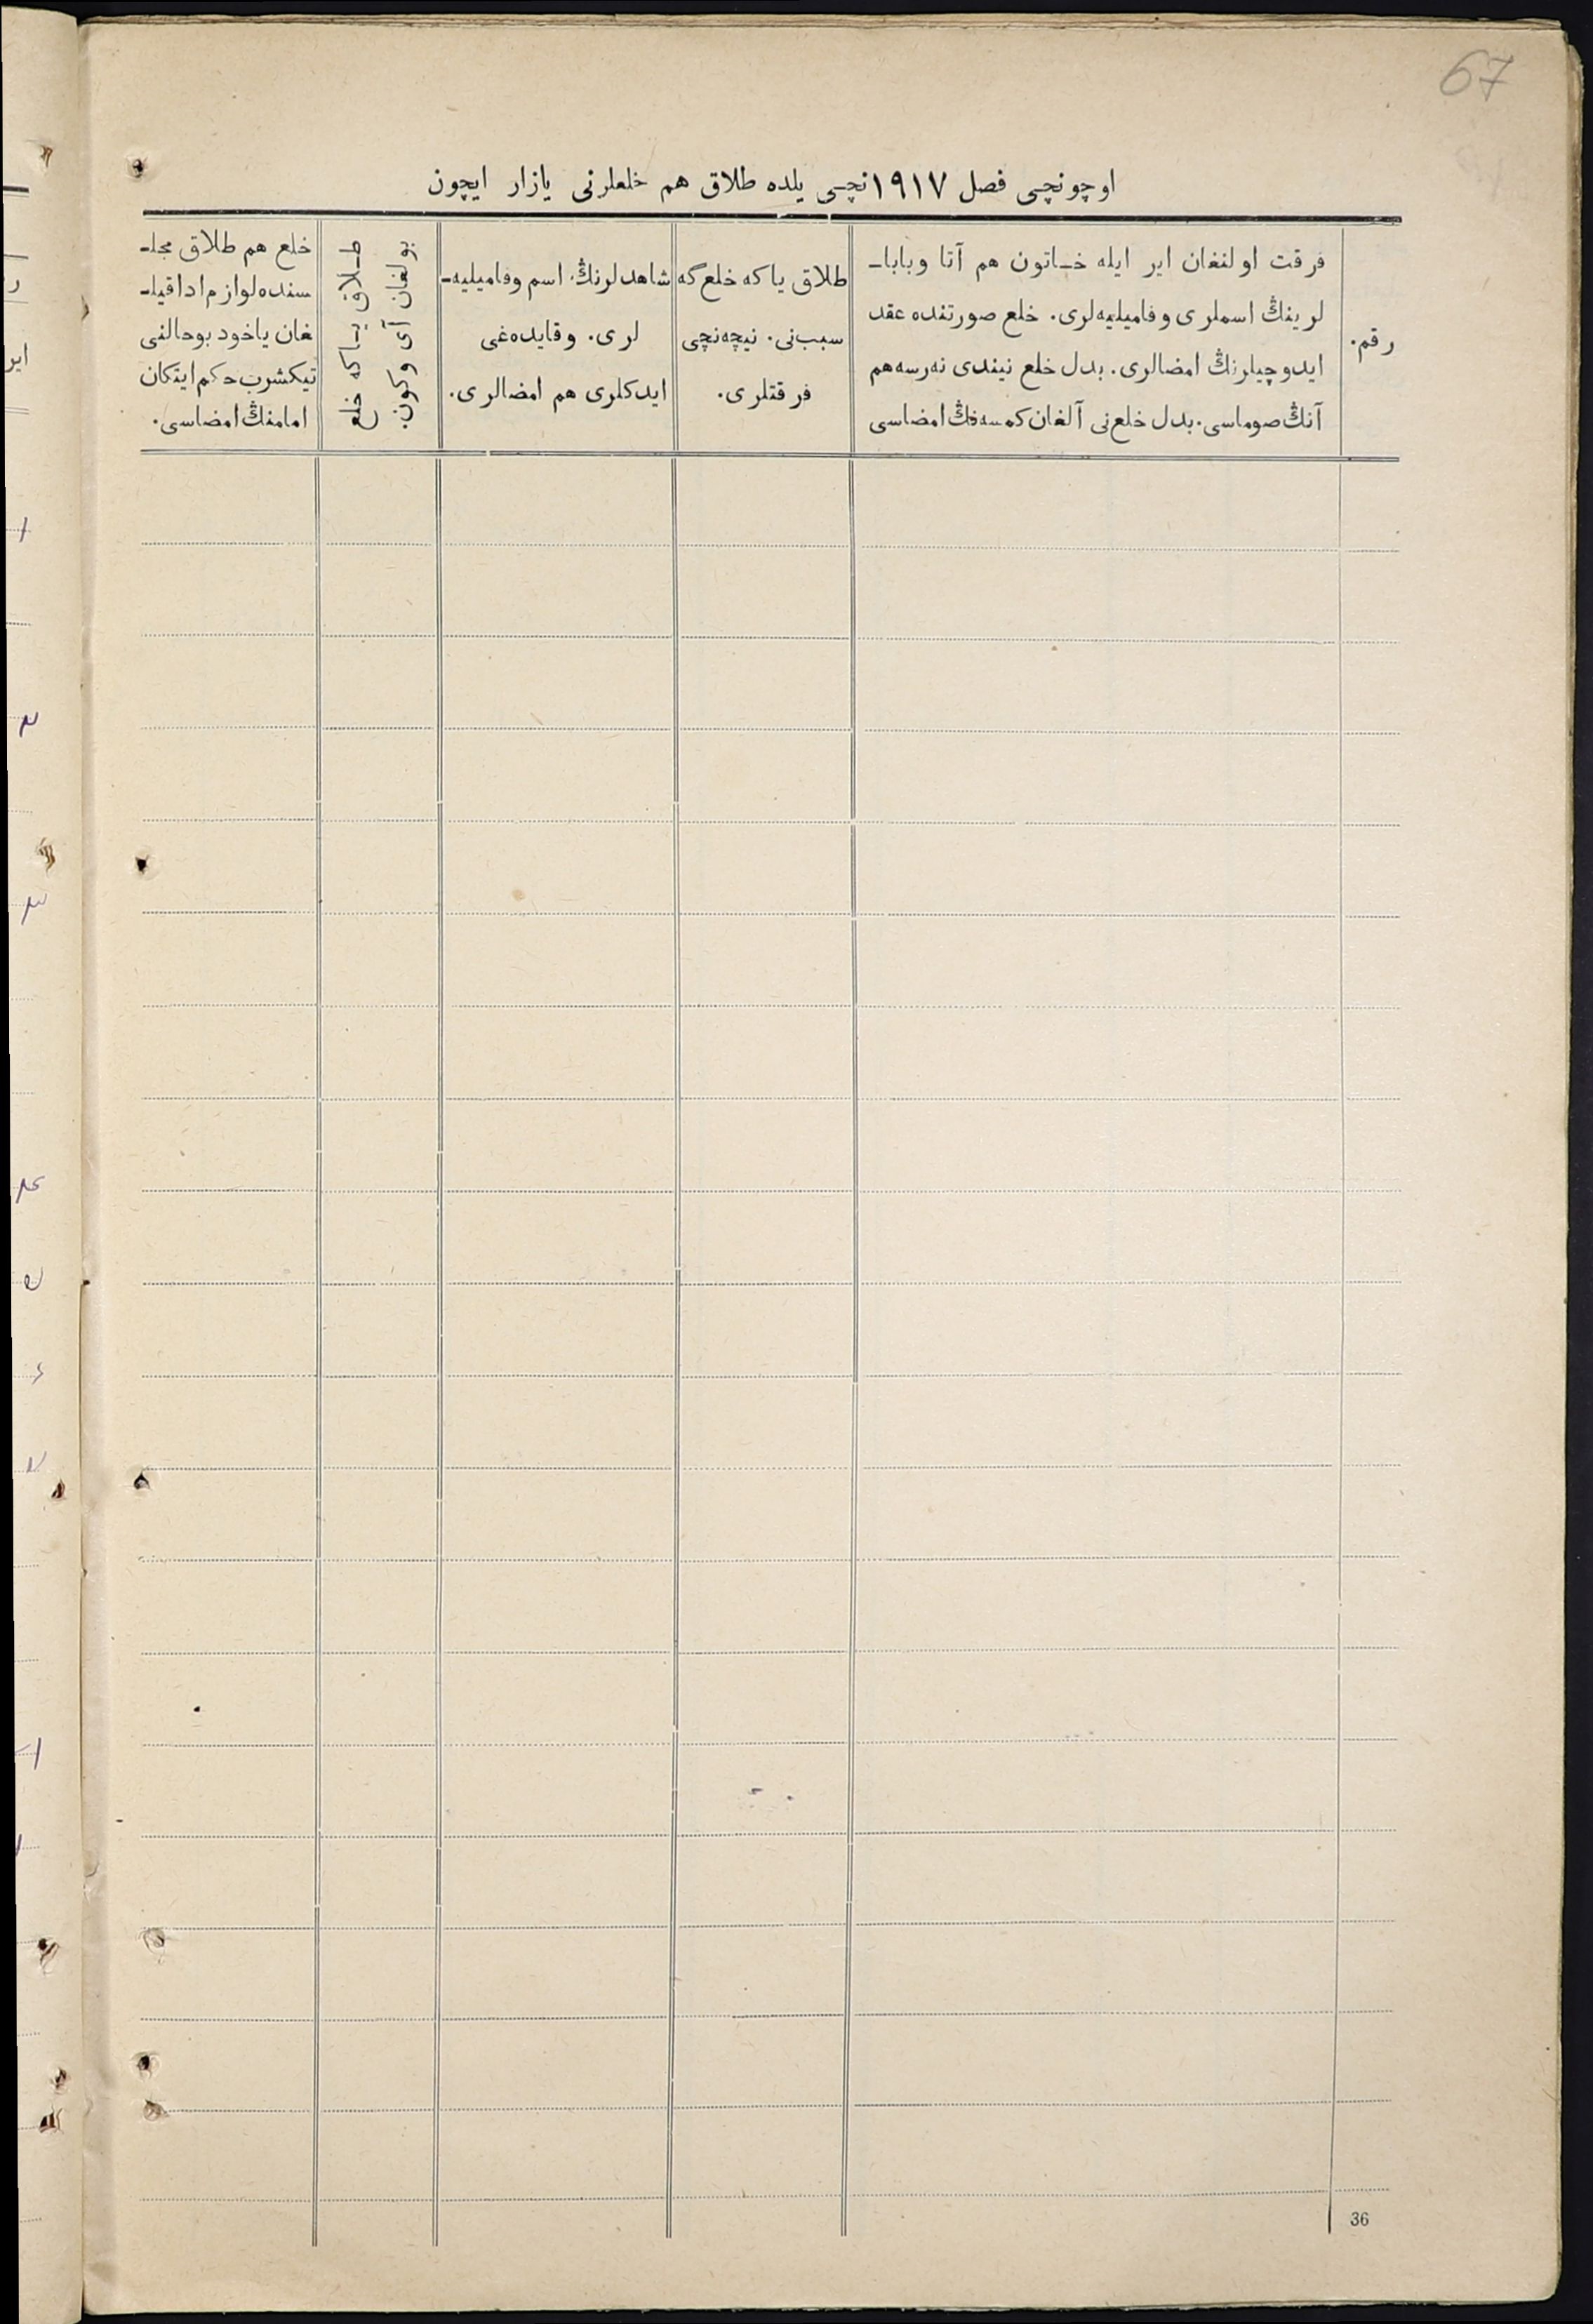 67
اوچونچی فصل ١٩١٧نچی یلده طلاق هم خلعلرنی یازار ایچون
رقم.
فرقت اولنغان ایر ایله خـاتون هم آتا وبابا-
لرینڭ اسملری وفامیلیه‌لری. خلع صورتنده عقد
ایدوچیلرنڭ امضالری. بدل خلع نیندی نه‌رسه هم
آنڭ صوماسی. بدل خلع‌نی آلغان کمسه‌نڭ امضاسی
طلاق یاکه خلع‌گه
سبب‌نی. نیچه‌نچی
فرقتلری.
شاهدلرنڭ اسم وفامیلیه-
لری. وقایده‌غی
ایدکلری هم امضالری.
طـلاق یـاکه خلع
بولغان آی وکون.
خلع هم طلاق مجلـ
سنده لوازم ادا قیلـ
غان یاخود بوحالنی
تیکشرب حکم ایتکان
امامنڭ امضاسی.
36